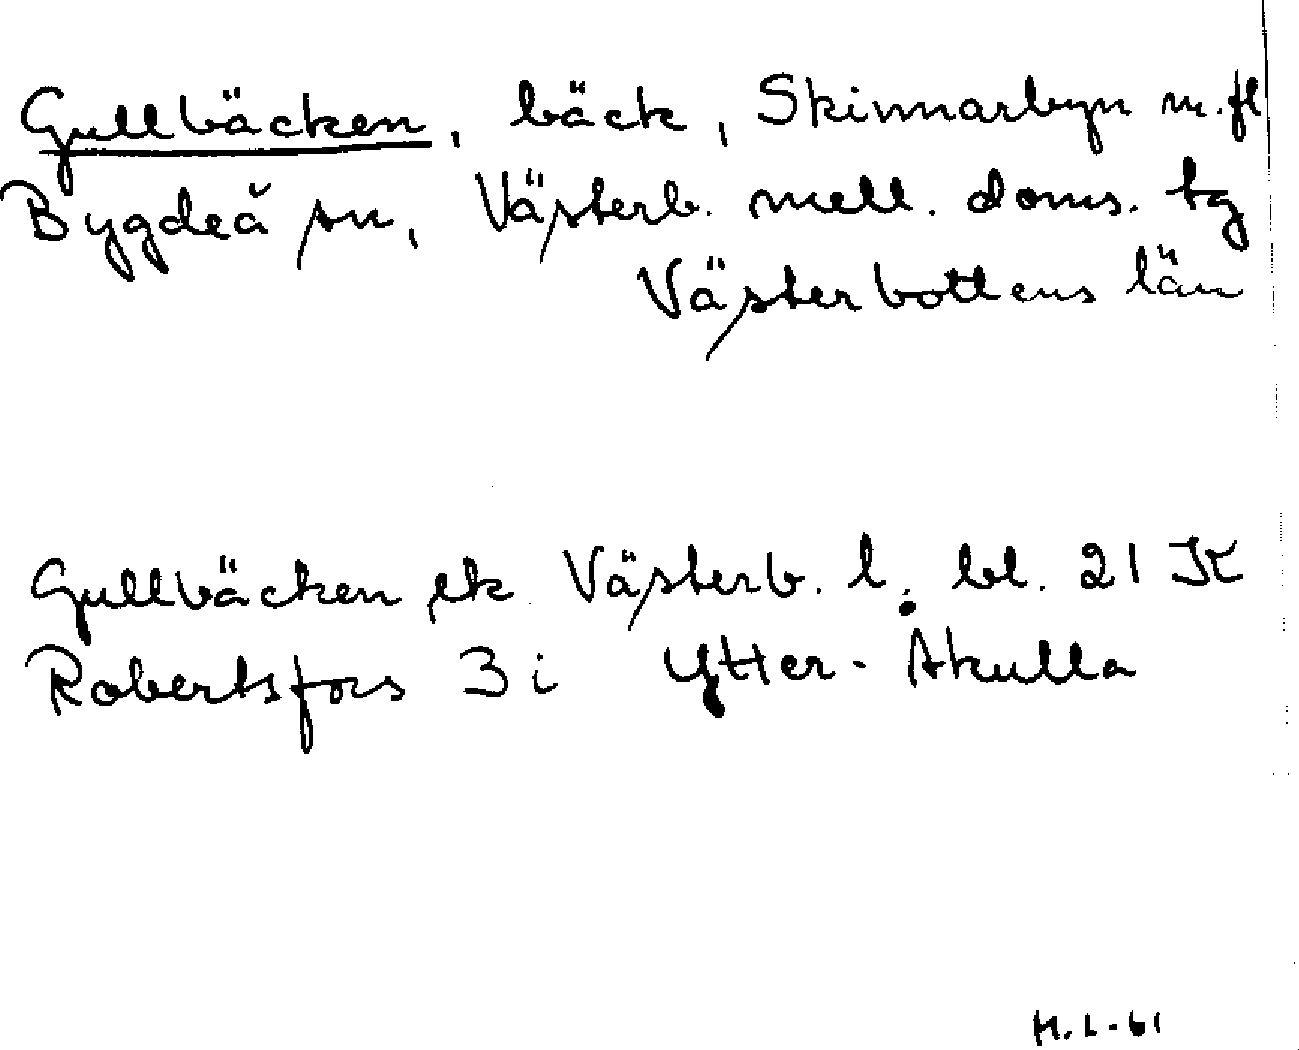 Gullbäcken, bäck, Skinnarbyn m.fl
Bygdeå sn, Västerb. mell. doms. tg
Västerbottens län
Gullbäcken ek Västerb. l. bl. 21 K
Robertsfors 3 i Ytter-Åkulla
H.L-61